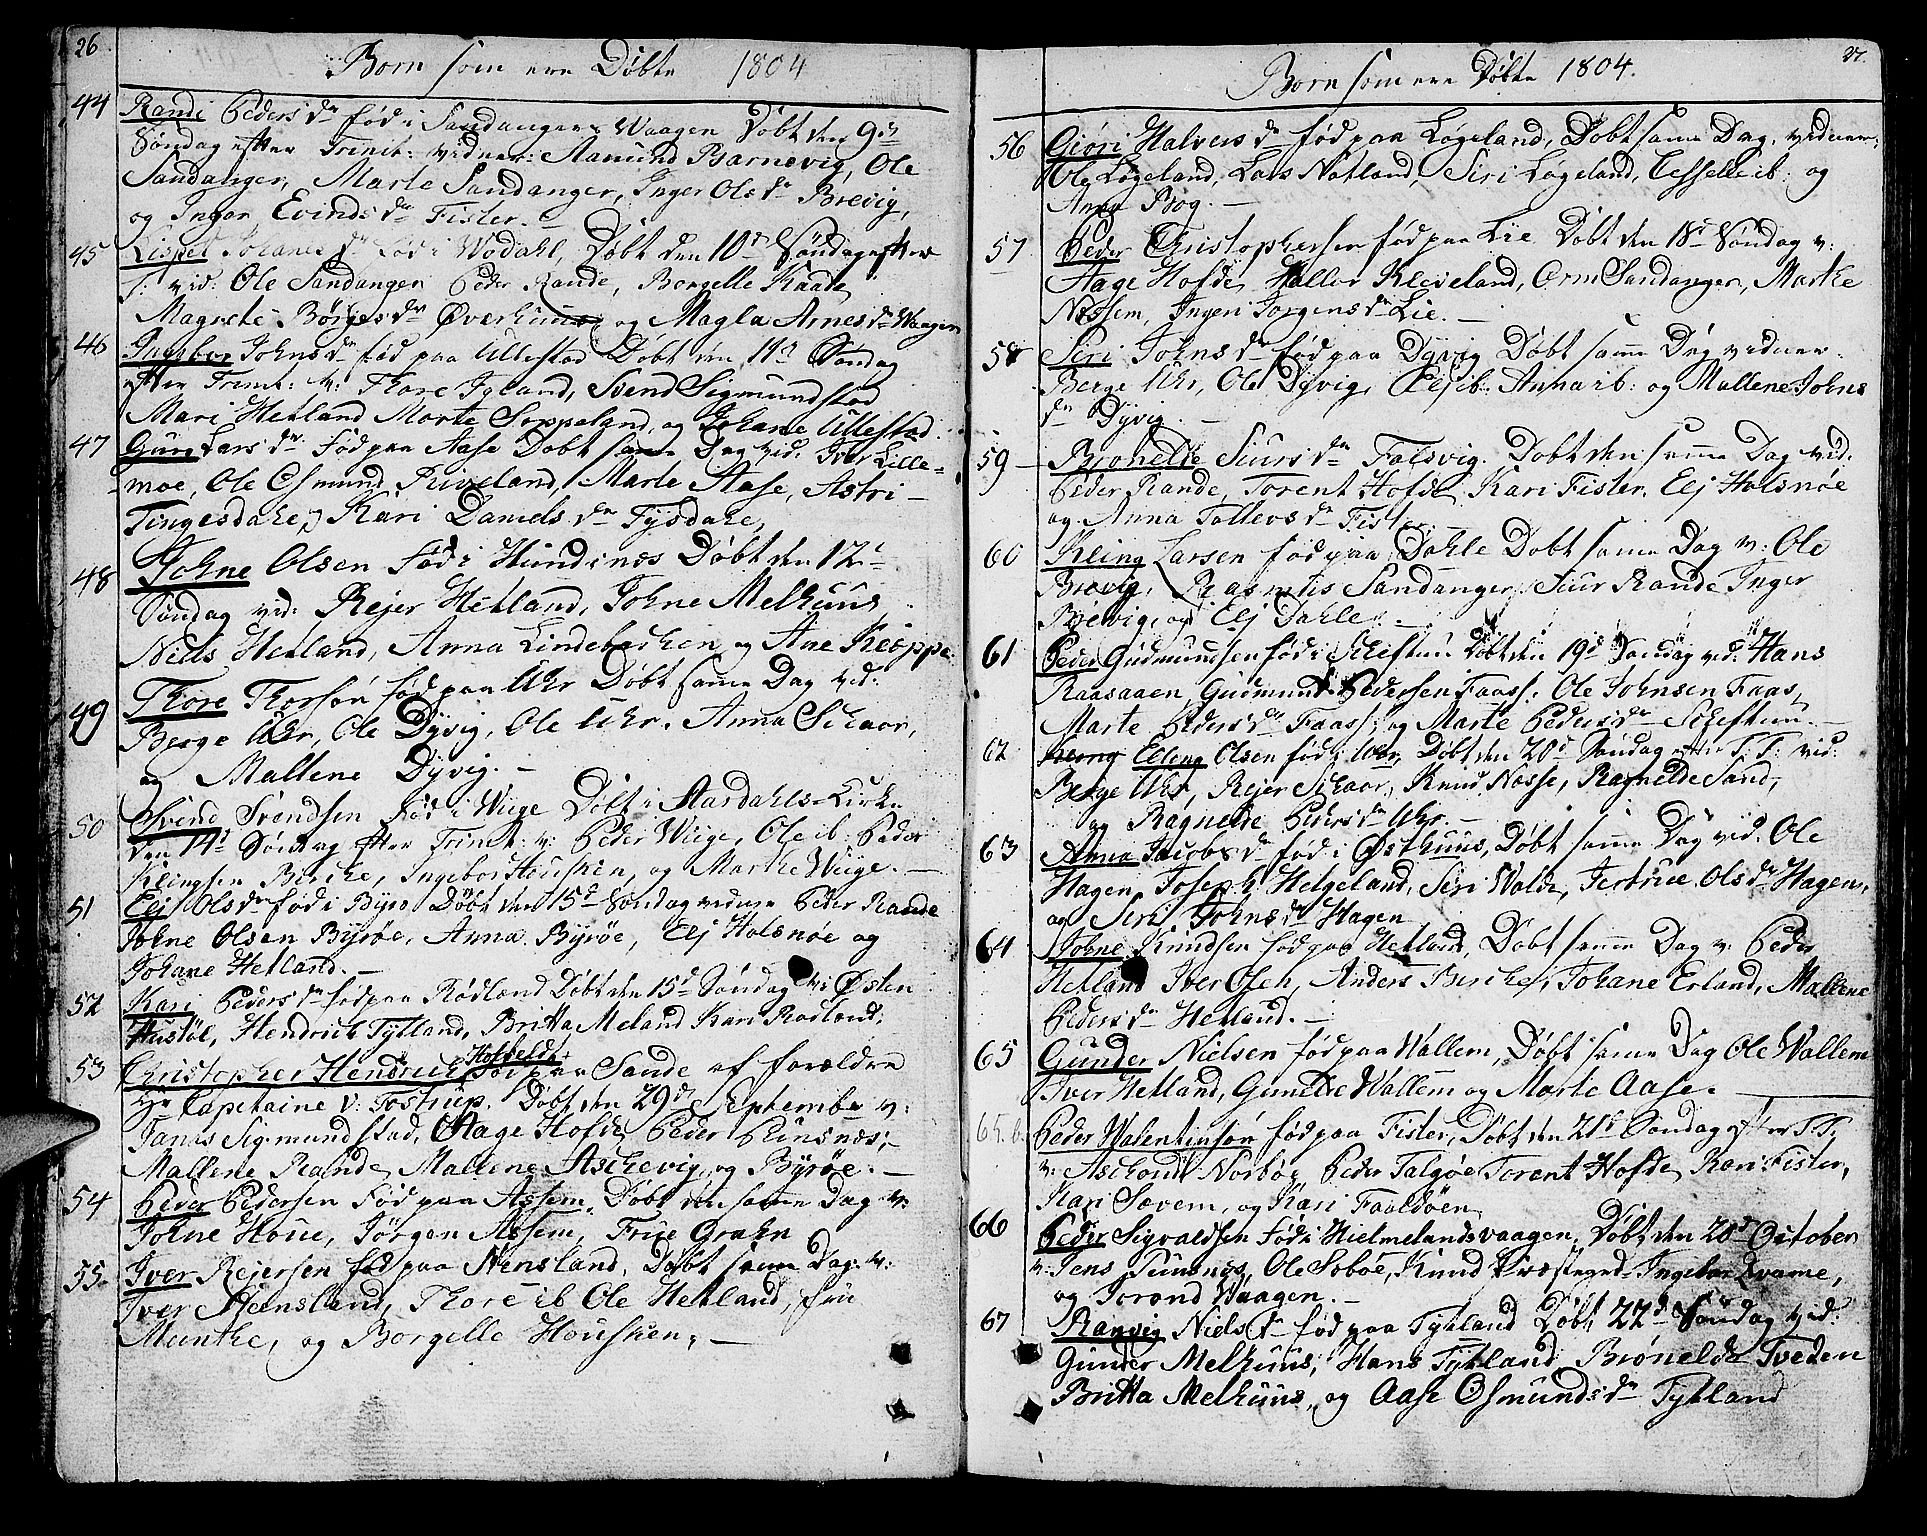 26
Born som ere Døbte 1804
44 Randi Peders dr fød i Sandanger Waagen Døbt den 9de
Søndag efter Trinit: vidner: Aamund Barnevig, Ole
Sandanger, Marte Sandanger, Inger Ols dr Brevig,
og Inger Evinds dr Fister. –
45 Lispet Johanes dr Fød i Wodahl, Døbt den 10d Søndag efter
T: vid: Ole Sandanger Peder Rande, Borgelle Kaade
Magrete Børges dr Øverhuus og Magla Arnes dr Waagen
46 Ingebor Johns dr fød paa Ullestad Døbt den 11d Søndag
efter Trinit: v: Thore Tyland, Svend Sigmundstad
Mari Hetland Marte Soppeland, og Johane Ullestad.
47 Guro Lars dr Fød paa Aase Døbt samme Dag vid: Iver Lille-
moe, Ole Esmund Riveland, Marte Aase, Astri
Tingesdahl, Kari Daniels dr Tysdahl,
48 Johne Olsen Fød i Hundsnes Døbt den 12d
Søndag vid: Rejer Hetland, Johne Melhuus,
Niels Hetland, Anna Lindebrechen og Ane Kloppe
49 Thore Thorsøn fød paa Uhr Døbt samme Dag vid:
Berge Uhr, Ole Dyvig, Ole Uhr. Anna Schaar,
og Mallene Dyvig. –
50 Svend Svendsen Fød i Wiige Døbt i Aardahls Kirke
den 14d Søndag efter Trinit: v: Peder Wiige, Ole ib: Peder
Klingsen Birche, Ingebor Housken, og Marthe Wiige. –
51 Elj Ols dr fød i Byrø Døbt den 15d Søndag vidner Peder Rande
Johne Olsen Byrøe, Anna Byrøe, Elj Halsnøe og
Johane Hetland. –
52 Kari Peders dr fød paa Rødland Døbt den 15d Søndag v: Østen
Hustøl, Hendrich Tytland, Britta Meland Kari Rødland,
53 Christopher Hendrich Hosfeldt Fød paa Sande af forældre
Hr Capitaine v: Tostrup. Døbt den 29d Septembr v:
Janis Sigmundstad, Aage Hofde Peder Pundsnes,
Mallene Rande, Mallene Aschevig, og Byrøe. –
54 Peder Pedersen Fød paa Assem, Døbt den samme Dag v:
Johne Houe, Jørgen Assem, Frue Grahn
55. Iver Rejersen fød paa Nensland, Døbt samme Dag. v:
Iver Steensland, Thore ib Ole Hetland, Frue
Munthe, og Borgelle Housken, –
27.
Born som ere Døbte 1804.
56 Giøri Halvors dr fød paa Løgeland, Døbt samme Dag, vidner:
Ole Løgeland, Lars Nøtland, Siri Løgeland, Cesselle ib: og
Anna Bog. –
57 Peder Christophersen fød paa Lie Døbt den 18d Søndag v:
Aage Hofde, Hallor Kleiveland, Orm Sandanger, Marthe
Nessem, Ingeri Jorgens dr Lie. –
58 Siri Johns dr fød paa Dyvig Døbt samme Dag vidner.
Berge Uhr, Ole Dyvig, Elj ib: Anna ib: og Mallene Johns
dr Dyvig. –
59 – Brønelde Siurs dr Falsvig. Døbt den samme Dag vid.
Peder Rande, Torent Hofde, Kari Fister. Elj Halsnøe
og Anna Tollevs dr Fister. –
60 Kling Larsen fød paa Dahle Døbt samme Dag v: Ole
Brevig, Rasmus Sandanger, Siur Rande Inger
Brevig, og Elj Dahle. –
61 Peder Gudmundsen fød i Scheftun Døbt den 19d Søndag vid: Hans
Raasaaen, Gudmund Pedersen Faass. Ole Johnsen Faas,
Marte Peders dr Faass, og Marte Peders dr Scheftun. –
62 Elling Olsen fød i Uhr, Døbt den 20d Søndag efter T: T: vid:
Berge Uhr, Rejer Schaar, Knud Nosse, Ragnelde Sand,
og Ragnelde Peders dr Uhr. –
63 Anna Jacobs dr fød i Østhuus, Døbt samme Dag vid: Ole
Hagen, Joseph Helgeland, Siri Walde, Jertrue Ols dr Hagen,
og Siri Johns dr Hagen
64 Johne Knudsen fød paa Hetland, Døbt samme Dag v: Peder
Hetland Iver Osen, Anders Birche, Johane Erland, Mallene
Peders dr Hetland. –
65 Gunder Nielsen fød paa Wallem, Døbt samme Dag Ole Wallem
Iver Hetland, Gunelde Wallem og Marte Aase.
65.b. Peder Walentinsøn fød paa Fister, Døbt den 21d Søndag efter T:T:
v: Aschoud Norbø, Peder Talgøe Torent Hofde, Kari Fister,
Kari Sævem, og Kari Faaldøen
66 Peder Sigvaldsen Fød i Hielmelandsvaagen, Døbt den 20d October
v: Jens Pundsnes, Ole Sobøe, Knud Præstegrd Ingebor Qvame,
og Torond Waagen. –
67 Ranvig Niels dr fød paa Tytland Døbt 22d Søndag vid:
Gunder Melhuus, Hans Tytland Brønelde Tveden
Britta Melhuus, og Aase Osmunds dr Tytland